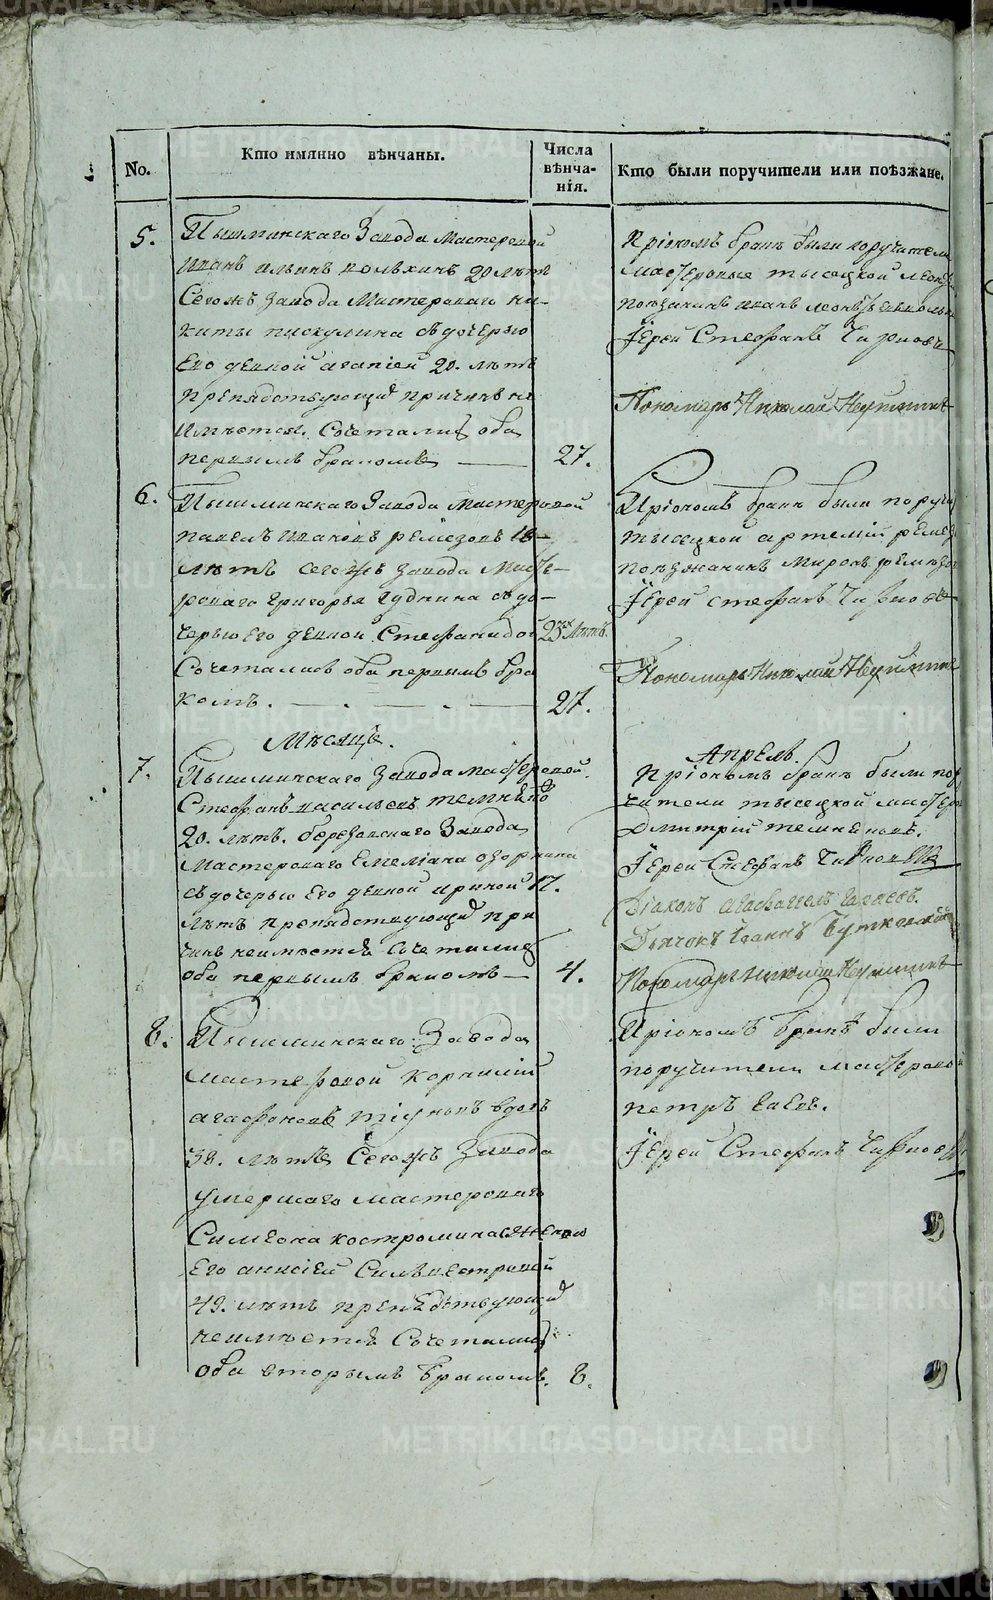 No.
Кто имянно вѣнчаны.
Числа
вѣнча-
нія.
Кто были поручители или поѣзжане.
5.
Пышминскаго Завода Мастеровой
Иванъ Ильинъ 20 лѣтъ
Сегожъ завода Мастероваго Ни-
киты пискулина съ дочерью
Его девкой агапіей 20. лѣтъ
препядствующихъ причинъ не
имѣется. Сочетались оба
первымъ бракомъ
27.
При ономъ бракѣ были поручители
мастеровые тысецкой
поѣзжанинъ иванъ
Іерей Стефанъ
Пономарь Николай Неуйминъ
6.
Пышминскаго Завода мастеровой
павелъ ивановъ ремезовъ 18
лѣтъ сегожъ завода Масте-
роваго григорья гудкина съ до-
черью его девкой Стефанидой 23хъ лѣтъ.
Сочетались оба первымъ бра
комъ.
27.
При ономъ бракѣ были поручи
тысецкой артемій ремез
поѣзжанинъ миронъ ремезов
Іерей стефанъ
Пономарь Николай Неуйминъ
Мѣсяцъ. Апрель.
7.
Пышминскаго завода мастеровой
Стефанъ васильевъ
20. лѣтъ. березовскаго завода
мастероваго Емеліана озорнина
съ дочерью Его девкой ириной 17.
лѣтъ препядствующихъ при
чинъ неимѣется Сочетались
оба первымъ бракомъ
4.
При ономъ бракѣ были пор
чители тысецкой мастеро
Дмитрій
Іерей Стефанъ
Діаконъ
Дьячокъ Іоаннъ
Пономарь Николай Неуйминъ
8.
Пышминскаго завода
мастеровой корнилій
агафоновъ вдовъ
38. лѣтъ Сегожъ завода
умершаго мастероваго
Симеона костромина женою
его анисіей Сильвестровой
49. лѣтъ препядствующихъ
неимѣется Сочетались
оба вторымъ бракомъ.
8.
При ономъ бракѣ были
поручители мастеровой
петръ
Іерей Стефанъ
METRIKI.GASO-URAL.RU